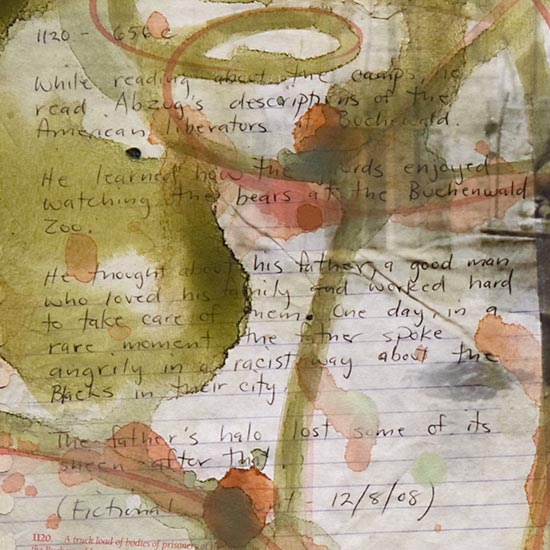 1120 - 656c
While reading about the camps, he
read Abzug's descriptions of the
American liberators of Buchenwald.
He learned how the guards enjoyed
watching the bears at the Buchenwald
Zoo.
He thought about his father, a good man
who loved his family and worked hard
to take care of them. One day, in a
rare moment, the father spoke
angrily in a racist way about the
Blacks in their city.
The father's halo lost some of its
sheen after that.
(Fictional - 12/8/08)
1120. A truck load of bodies of prisoners
the